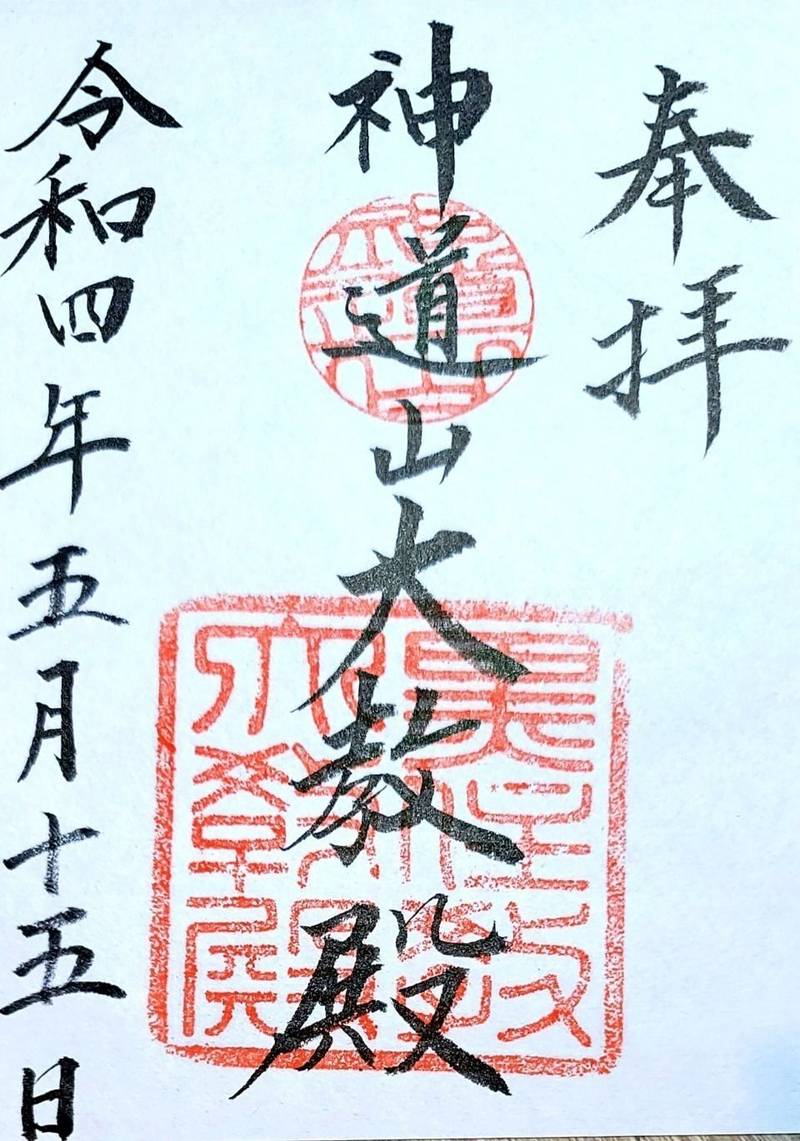 奉拝
神道山大教殿
令和四年五月十五日